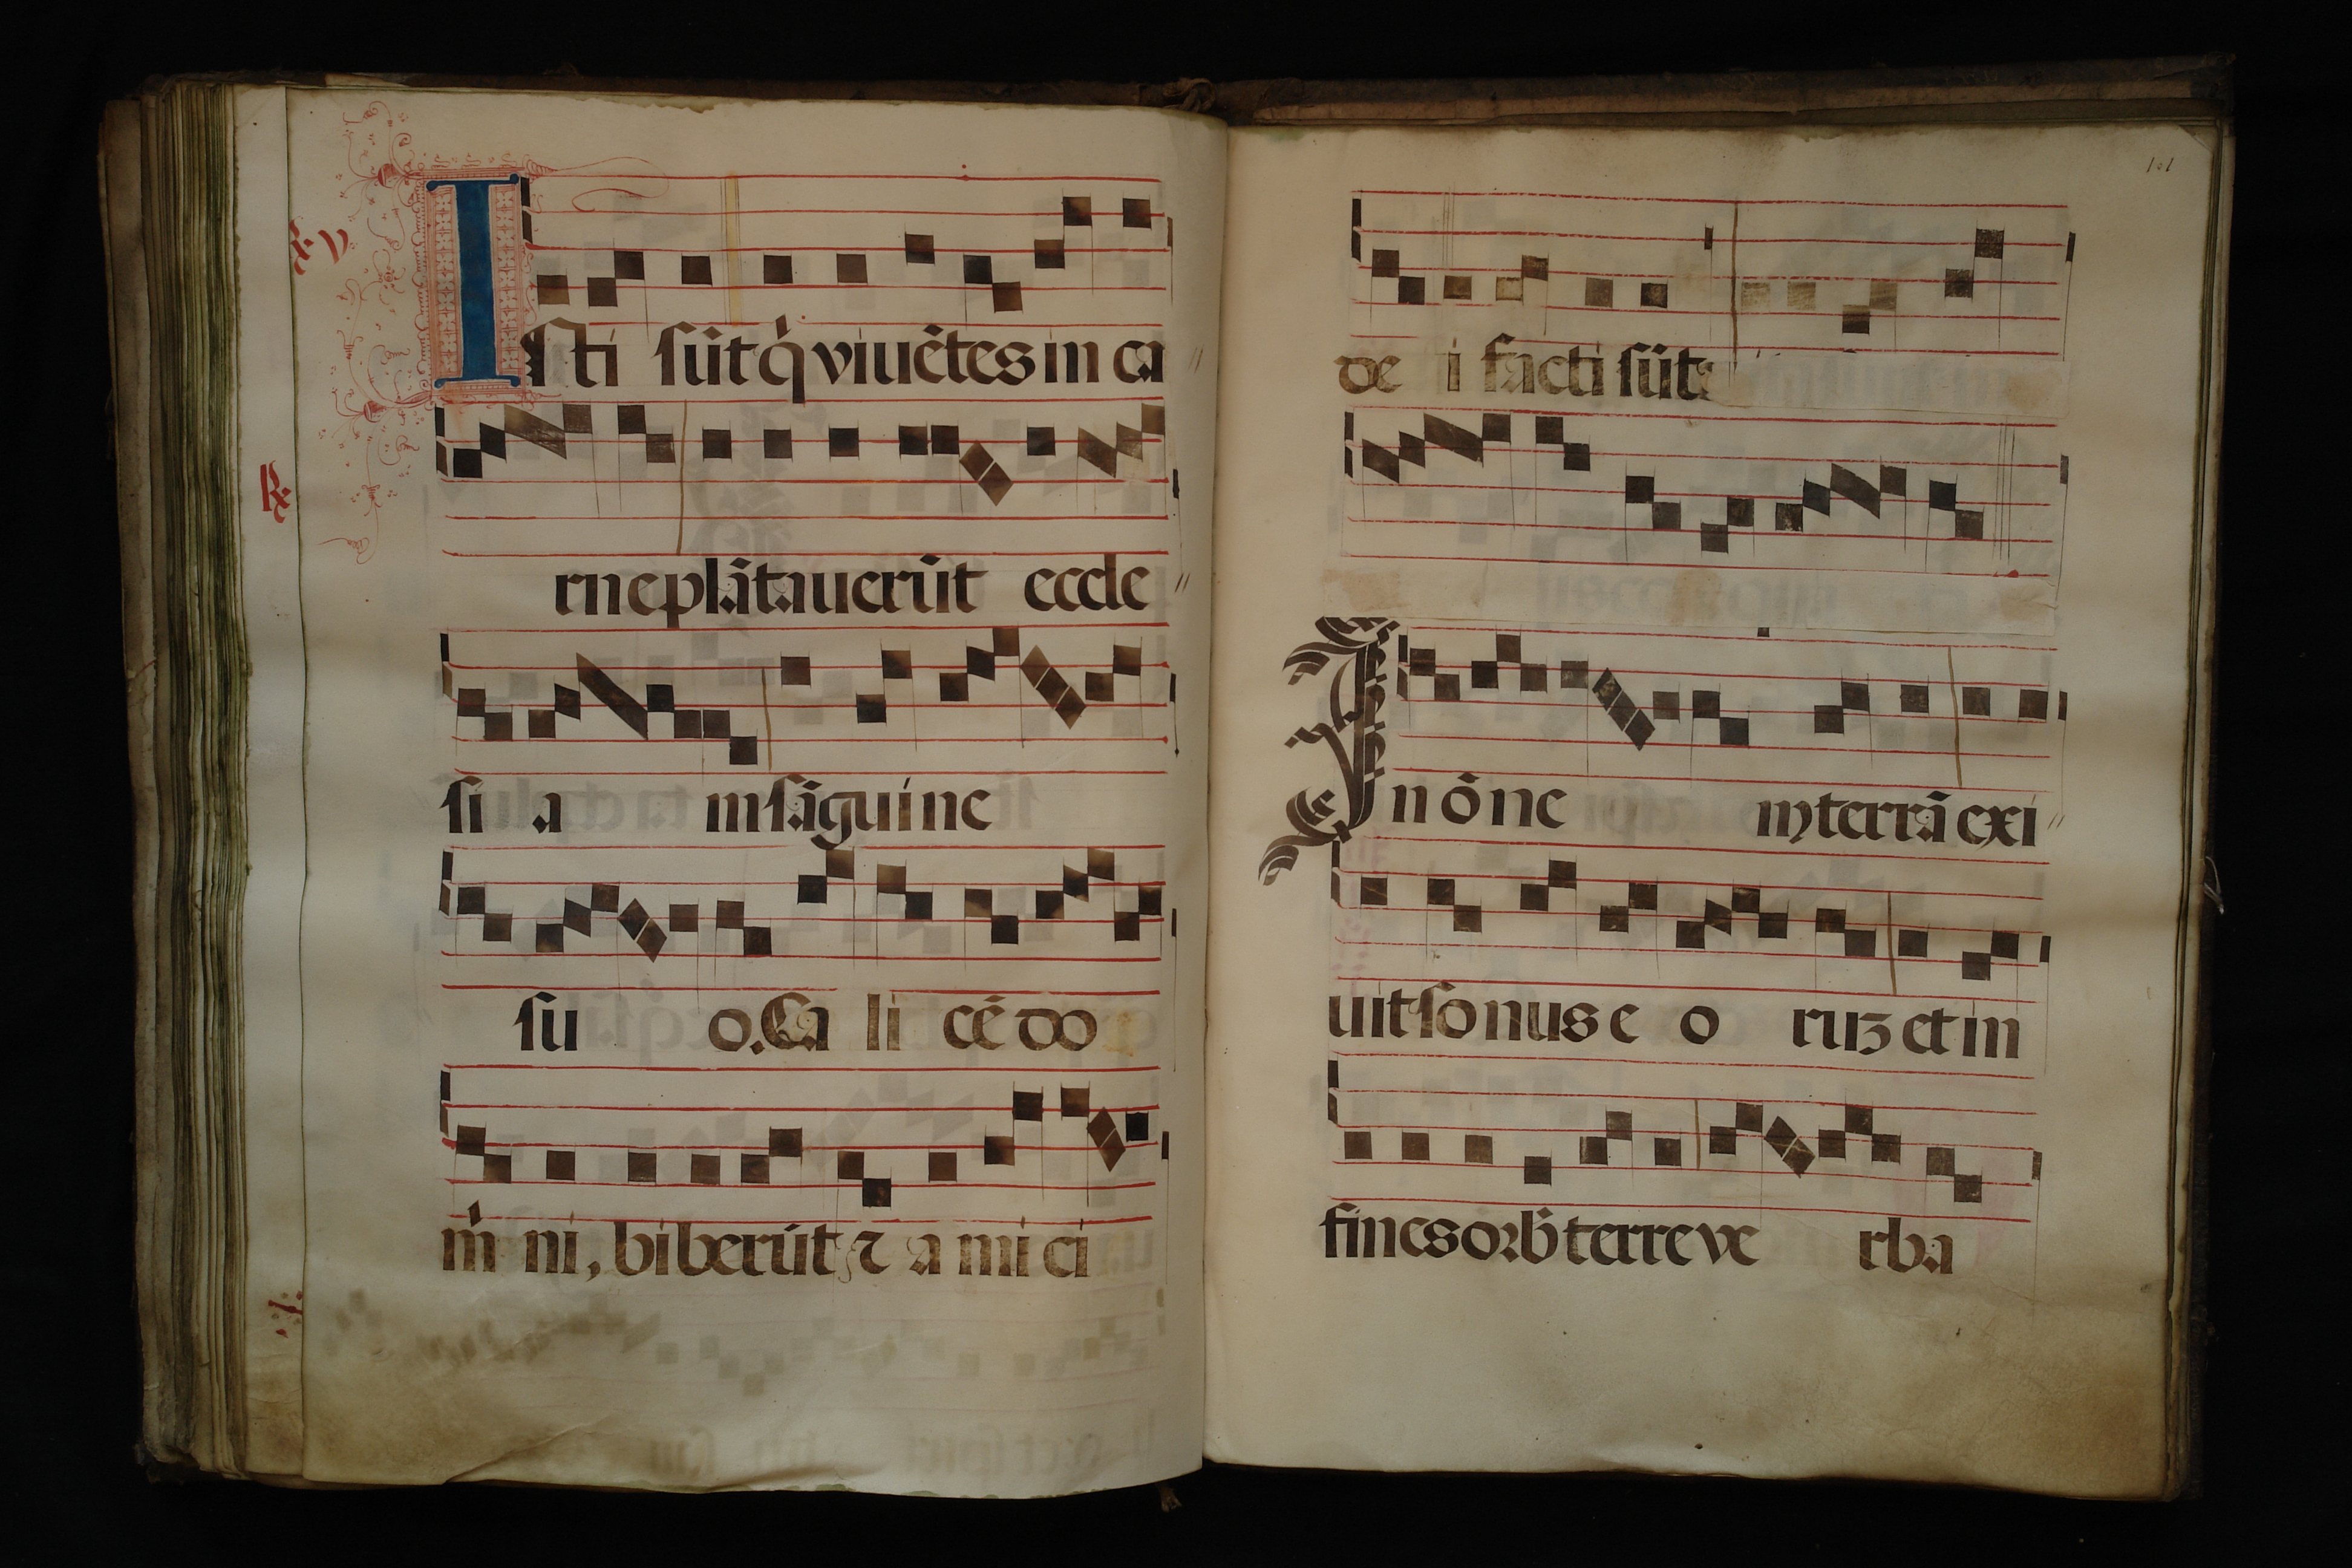 Isti sūt q̇ viuētes in ca //
rne plātauerūt eccle //
si am sāguine
R⁊
su o. Ca li cē do
mı̇ ni, biberūt ⁊ a mi ci
101
de i facti sūt.
In ōne m terrā exi //
uit sonus e o ruꝫ et in
fines orb̄ terre ve rba